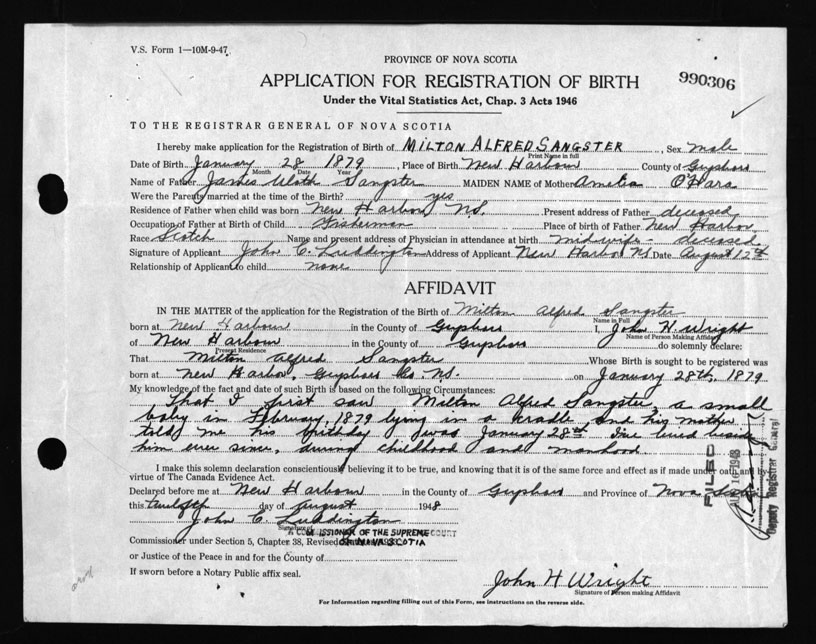 V.S. Form 1—10M-9-47
PROVINCE OF NOVA SCOTIA
APPLICATION FOR REGISTRATION OF BIRTH
990306
Under the Vital Statistics Act, Chap. 3 Acts 1946
TO THE REGISTRAR GENERAL OF NOVA SCOTIA
I hereby make application for the Registration of Birth of MILTON ALFRED SANGSTER, Sex male
Print Name in full
Date of Birth January 28 1879, Place of Birth New Harbour County of Guysboro
Month Date Year
Name of Father James Sangster MAIDEN NAME of Mother Amelia O'Hara
Were the Parents married at the time of the Birth? yes
Residence of Father when child was born New Harbour N.S. Present address of Father deceased
Occupation of Father at Birth of Child Fisherman Place of birth of Father New Harbor
Race Scotch Name and present address of Physician in attendance at birth midwife - deceased
Signature of Applicant John C. Luddington Address of Applicant New Harbor N.S. Date August 12th
Relationship of Applicant to child none
AFFIDAVIT
IN THE MATTER of the application for the Registration of the Birth of Milton Alfred Sangster
Name in Full
born at New Harbour in the County of Guysboro I, John H. Wright
Name of Person Making Affidavit
of New Harbour in the County of Guysboro do solemnly declare:
Present Residence
That Milton Alfred Sangster Whose Birth is sought to be registered was
born at New Harbor, Guysboro Co. N.S. on January 28th, 1879
My knowledge of the fact and date of such Birth is based on the following Circumstances:
That I first saw Milton Alfred Sangster, a small
baby in February, 1879 lying in a cradle and his mother
told me his birthday was January 28th. I've lived beside
him ever since, during childhood and manhood.
I make this solemn declaration conscientiously believing it to be true, and knowing that it is of the same force and effect as if made under oath and by
virtue of The Canada Evidence Act.
Declared before me at New Harbour in the County of Guysboro and Province of Nova Scotia
this twelfth day of August 1948
John C. Luddington
Signature of
A COMMISSIONER OF THE SUPREME COURT
OF NOVA SCOTIA
Commissioner under Section 5, Chapter 38, Revised
or Justice of the Peace in and for the County of
If sworn before a Notary Public affix seal.
John H Wright
Signature of Person making Affidavit
For Information regarding filling out of this Form, see instructions on the reverse side.
FILED
16 1948
Deputy Registrar General